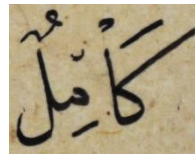 كَامِلٌ